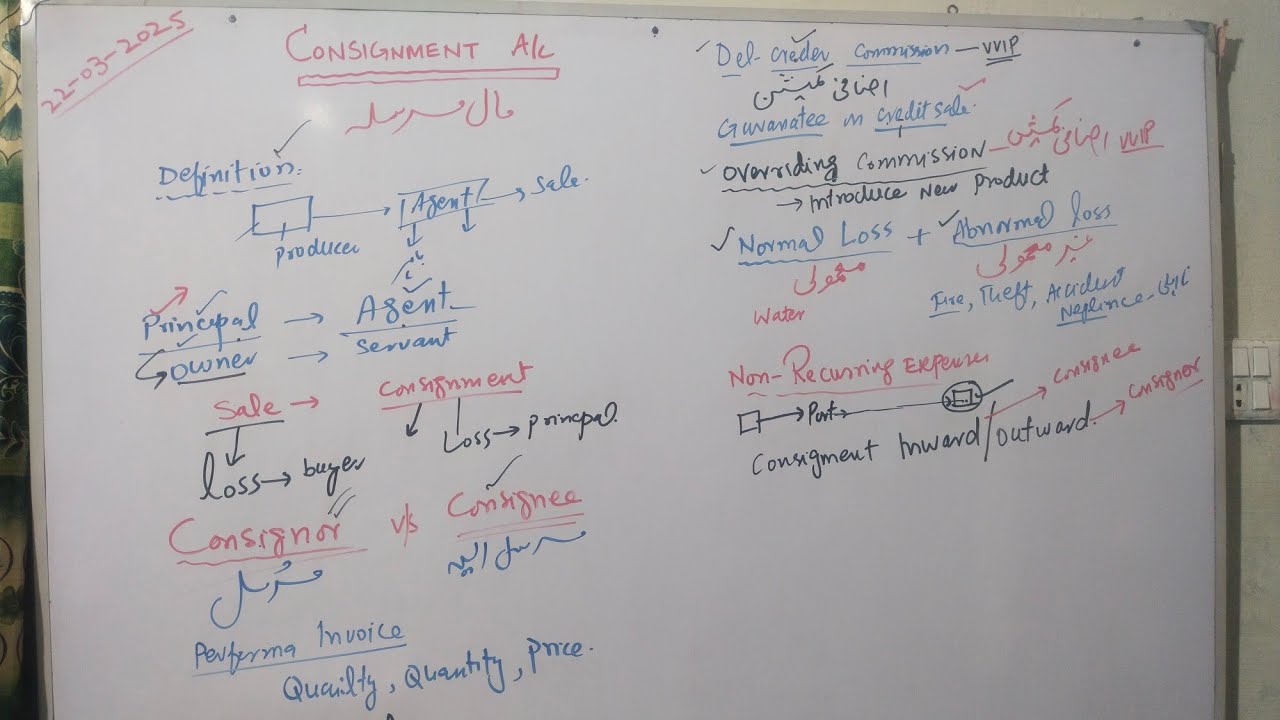 22-03-2025
CONSIGNMENT A/c
مال مرسلہ
Definition.
Agent → Sale.
Producer
Principal → Agent
Owner → Servant
Sale → Consignment
Loss → Principal.
Loss → buyer
Consignor v/s Consignee
مرسل مرسل الیہ
Performa Invoice
Quailty, Quantity, Price.
Del-creder Commission — VVIP
اضافی کمیشن
Guranatee in credit sale.
Overriding Commission — اضافی کمیشن VVIP
→ Introduce New Product
Normal Loss + Abnormal loss
معمولی غیر معمولی
Water
Fire, Theft, Accident
Neglince -
Non-Recurring Expenses
→ Port →
Consigment Inward/outward.
→ Consignee
→ Consignor